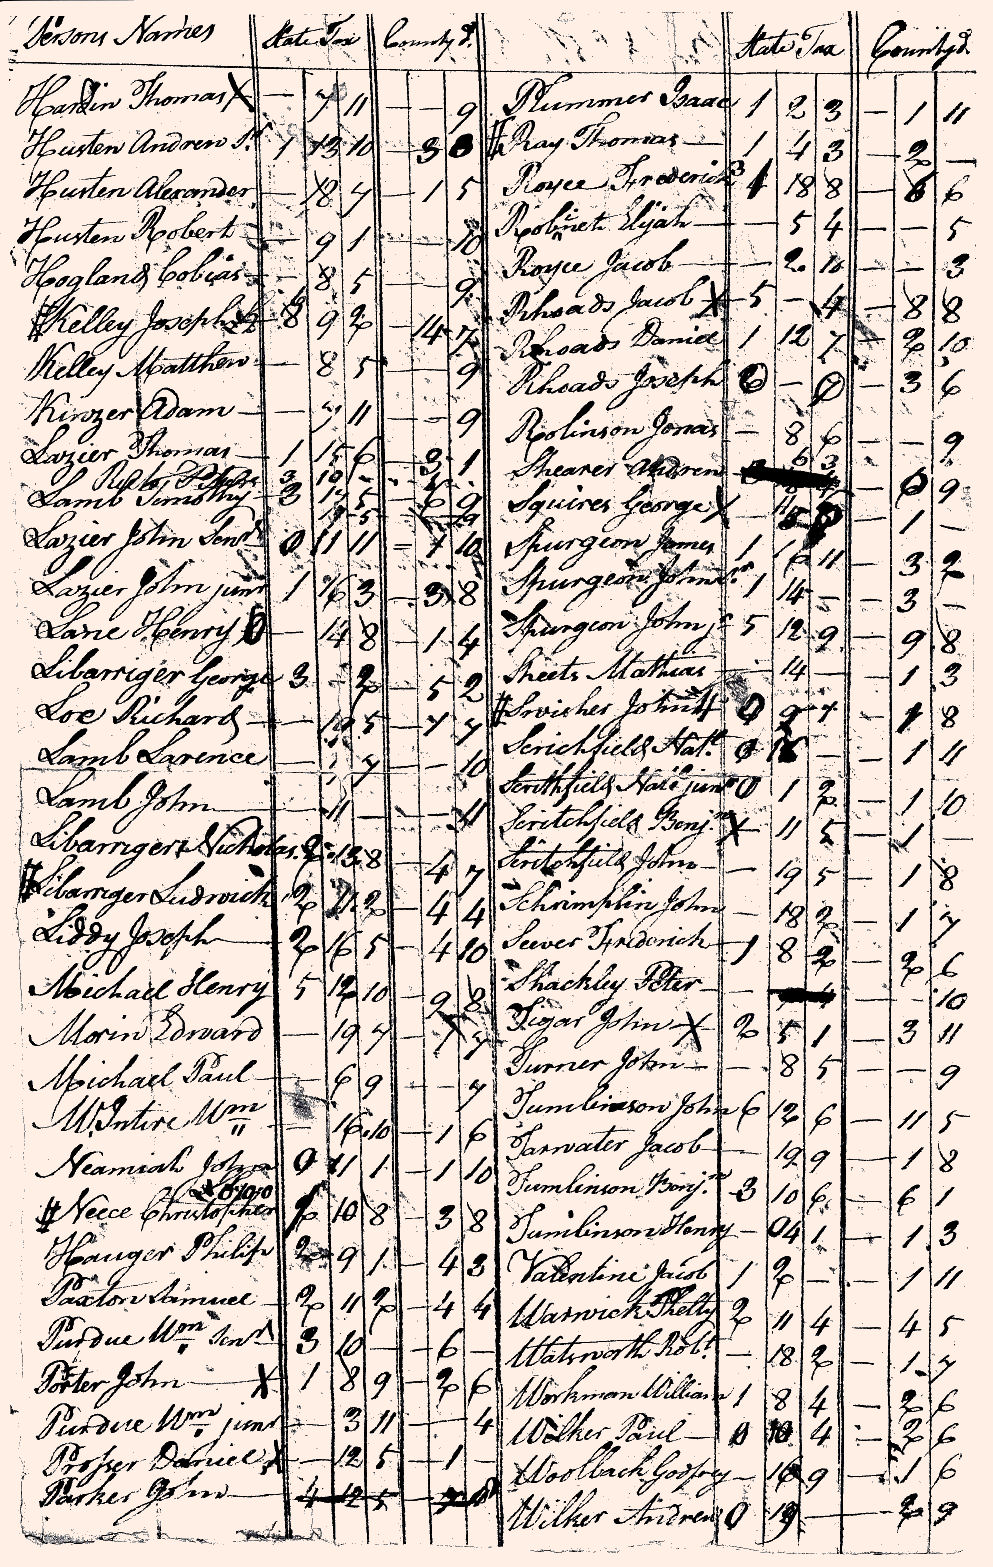 Persons Names State Tax County d.
Hardin Thomas X — 7 11 — — 9
Husten Andrew Sr. 1 13 10 — 3 8
Husten Alexander — 18 7 — 1 5
Husten Robert — 9 1 — — 10
Hogland Tobias — 8 5 — — 9
# Kelley Joseph 8 9 2 — 14 7
Kelley Matthew — 8 5 — — 9
Kinzer Adam — 7 11 — — 9
Lazier Thomas 1 15 6 — 3 1
Lamb Timothy 3 17 5 — 6 9
Lazier John Senr 0 11 11 — 1 10
Lazier John junr 1 16 3 — 3 8
Lane Henry — 14 8 — 1 4
Libarriger George 3 — 2 — 5 2
Loe Richard — 5 — 7 7
Lamb Larence — 7 — — 10
Lamb John — 11 — — 11
Libarriger Nicholas 2 13 8 — 4 7
# Libarriger Ludwick 2 2 — 4 4
Liddy Joseph 2 16 5 — 4 10
Michael Henry 5 12 10 — 9 8
Morin Edward — 19 7 — 7
Michael Paul — 6 9 — — 7
McIntire Wm — 16 10 — 1 6
Neamiah John 0 11 1 — 1 10
# Neece Christopher 2 10 8 — 3 8
Hauger Philip 2 9 1 — 4 3
Paxton Samuel 2 11 2 — 4 4
Purdue Wm Senr 3 10 — — 6 —
Porter John X 1 8 9 — 2 6
Purdue Wm junr — 3 11 — — 4
Prosser Daniel X — 12 5 — 1 —
Parker John 4 12 5 — 7
State Tax County d.
Plummer Isaac 1 2 3 — 1 11
# Ray Thomas 1 4 3 — 2 —
Royce Frederick 1 18 8 — 6 6
Robinet Elijah — 5 4 — — 5
Royce Jacob — 2 10 — — 3
Rhoads Jacob X 5 — 4 — 8 8
Rhoads Daniel 1 12 7 — 2 10
Rhoads Joseph — 3 6
Robinson Jonas — 8 6 — — 9
Shearer Andrew 9
Squires George X — — 1 —
Spurgeon James 1 16 11 — 3 2
Spurgeon John Sr. 1 14 — — 3 —
Spurgeon John jr 5 12 9 — 9 8
Sheets Mathias — 14 — — 1 3
# Swisher John 0 9 7 — 1 8
Scrichfield Natl. 0 16 — — 1 11
Scrithfield Natl junr 0 1 2 — 1 10
Scritchfield Benj.n X — 11 5 — 1 —
Scritchfield John — 19 5 — 1 8
Schrimplin John — 18 2 — 1 7
Seever Frederick 1 8 2 — 2 6
Shackley Peter — — — 10
Tigar John X 2 5 1 — 3 11
Turner John — 8 5 — — 9
Tumlinson John 6 12 6 — 11 5
Tarwater Jacob — 19 9 — 1 8
Tumlinson Benj.n 3 10 6 — 6 1
Tumlinson Henry — 04 1 — 1 3
Valentine Jacob 1 2 — — 1 11
Warwick Phetty 2 11 4 — 4 5
Watsworth Robt. — 18 2 — 1 7
Workman William 1 8 4 — 2 6
Wilker Paul 0 10 4 — 2 6
Woolback Godfrey — 16 9 — 1 6
Wilker Andrew 0 19 — — 2 9